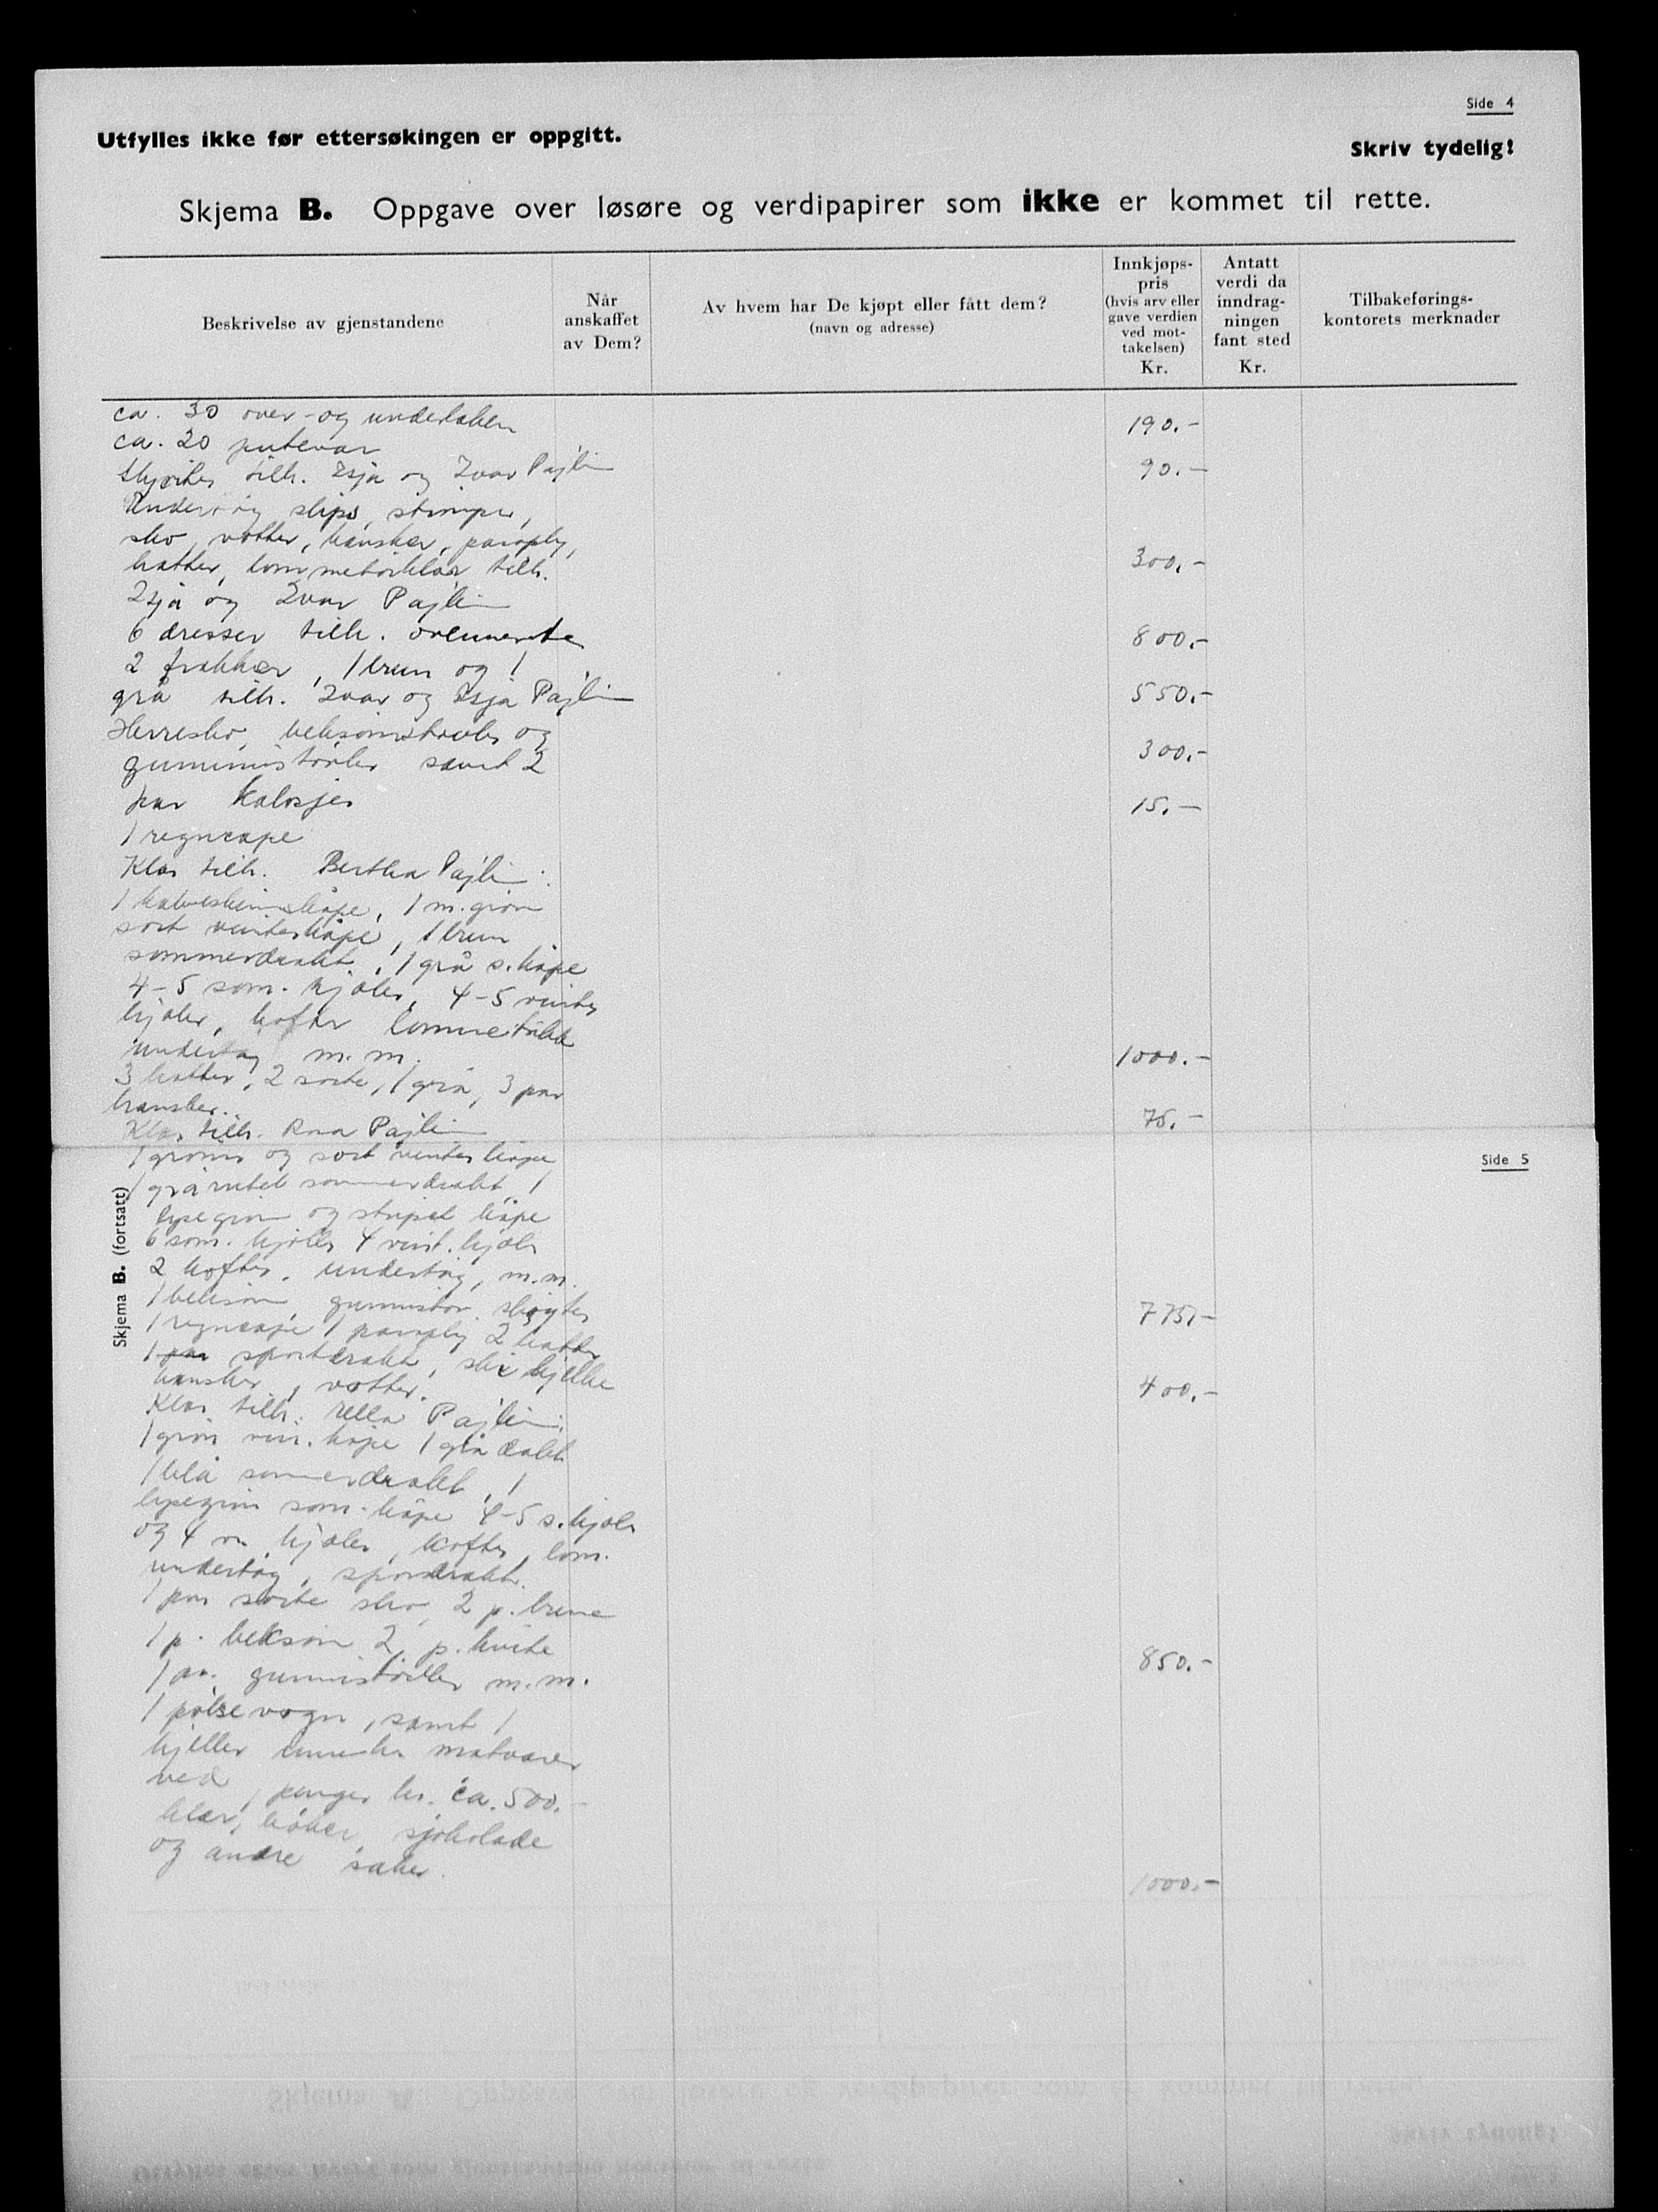 Side 4
Utfylles ikke før ettersøkingen er oppgitt.
Skriv tydelig!
Skjema B. Oppgave over løsøre og verdipapirer som ikke er kommet til rette.
Beskrivelse av gjenstandene
Når anskaffet av Dem?
Av hvem har De kjøpt eller fått dem?
(navn og adresse)
Innkjøps-
pris
(hvis arv eller
gave verdien
ved mot-
takelsen)
Kr.
Antatt
verdi da
inndrag-
ningen
fant sted
Kr.
Tilbakeførings-
kontorets merknader
ca. 30 over- og underlaken 190.-
ca. 20 putevar 90.-
Skjorter tilh. Isja og Ivar Pajlin
Undertøy slips, strømper,
sko, votter, hansker, paraply,
hatter, lommetørklær tilh. 300.-
Isja og Ivar Pajlin
6 dresser tilh. ovennevnte 800.-
2 frakker, 1 brun og 1
grå tilh. Ivar og Isja Pajlin 550.-
Herresko, beksømstøvler og
gummistøvler samt 2 300.-
par kalosjer
1 regncape 15.-
Klær tilh. Bertha Pajlin:
1 kalveskinnskåpe, 1 m. grønn
sort vinterkåpe, 1 brun
sommerdrakt, 1 grå s. kåpe
4-5 som. kjoler, 4-5 vinter
kjoler, kofter lommetørkl
undertøy m.m. 1000.-
3 hatter, 2 sorte, 1 grå, 3 par
hansker. 75.-
Klær tilh. Rosa Pajlin
1 grønn og sort vinterkåpe
Side 5
Skjema B. (fortsatt)
1 grårutet sommerdrakt, 1
lysegrønn og stripet kåpe
6 som. kjoler 4 vint. kjoler
2 kofter, undertøy, m.m.
1 beksøm, gummistøv. skøyter 775,-
1 regncape 1 paraply 2 hatter
1 par sportdrakt, ski kjelke
hansker, votter. 400.-
Klær tilh. Ella Pajlin:
1 grøn vin. kåpe 1 grå drakt
1 blå sommerdrakt, 1
lysegrøn som. kåpe 4-5 s. kjoler
og 4 v. kjoler, kofter, lom.
undertøy, sportdrakt.
1 par sorte sko, 2 p. brune
1 p. beksøm 2 p. hvite 850.-
1 par. gummistøvler m.m.
1 pølsevogn, samt 1
kjeller matvarer
ved, penger kr. ca. 500.-
klær, bøker, sjokolade
og andre saker. 1000.-